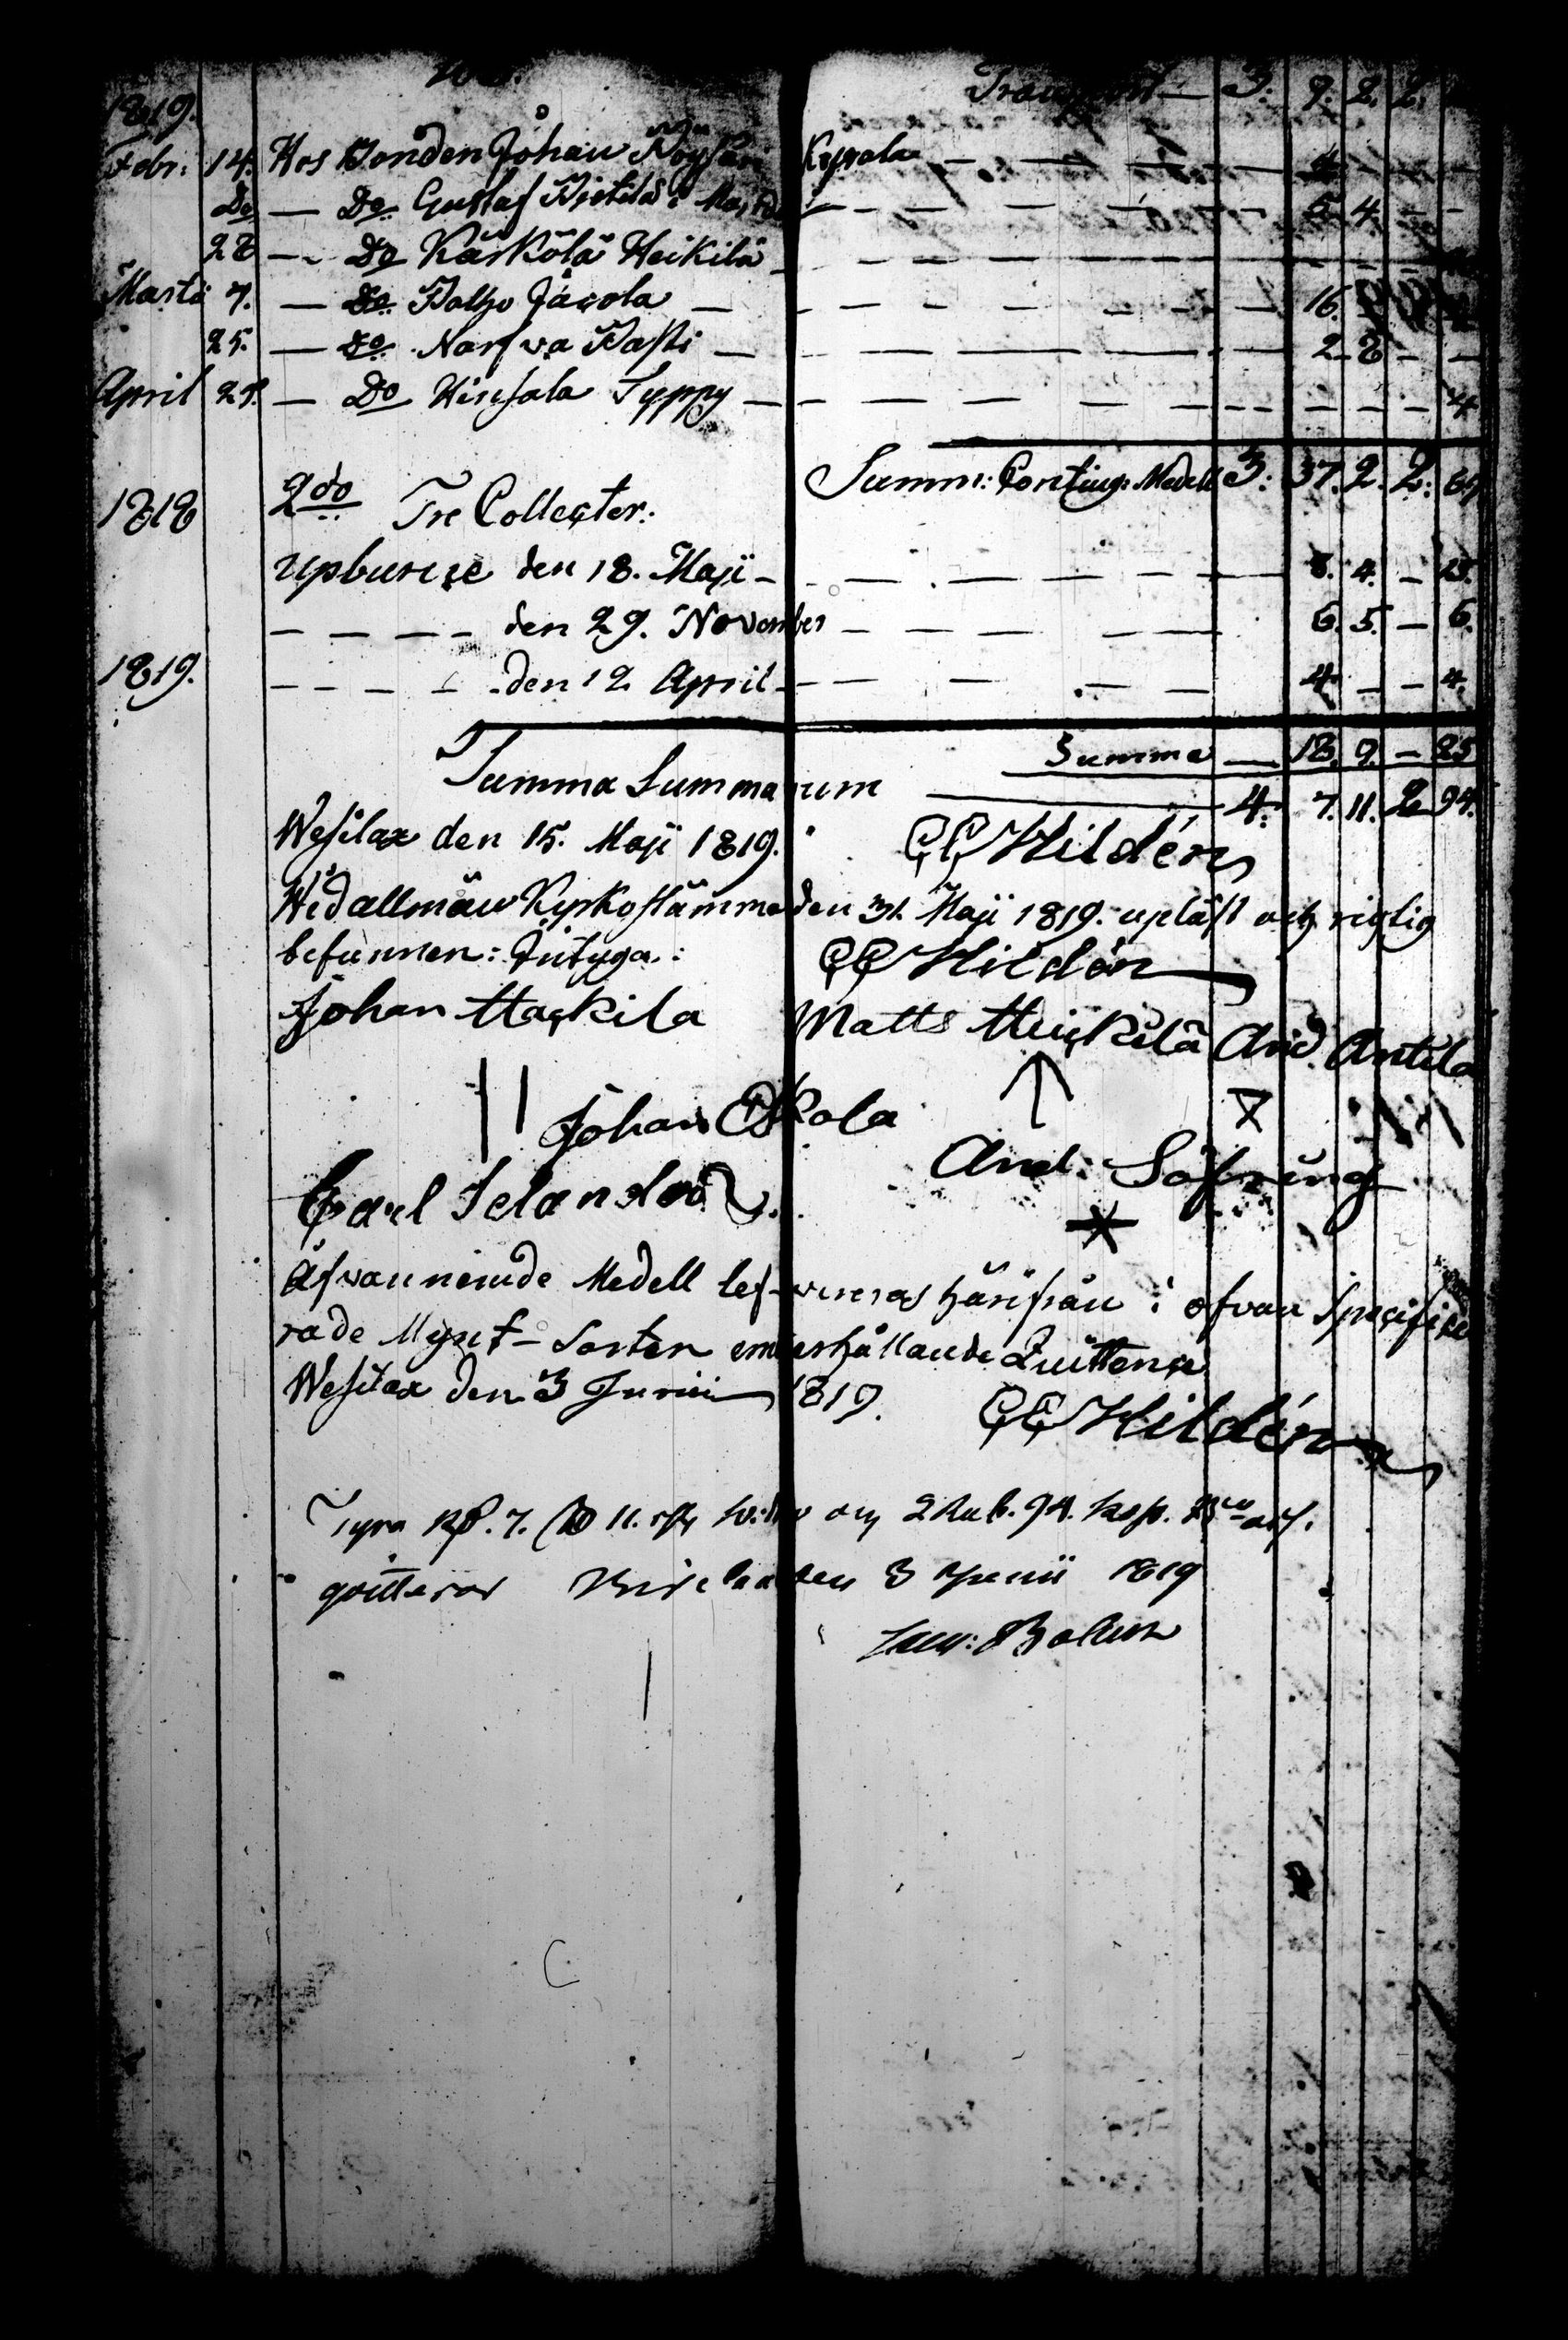 Transport — 3. 9. 2. 2.
1819.
Febr. 14. Hos Bonden Johan Kypala — — — — 4. — —
Do — Do Gustaf Pietilä i — — — — 5. 4. — —
28 — Do Kärkölä Heikilä — — — — — —
Martii 7. — Do Palho Jacola — — — — — 16.
25. — Do Narfva Pasti — — — — — 2. 8 — —
April 29. — Do Hinsala Typpy — — — — — — — — 4
Summ: Conting: Medell 3: 37. 2. 2. 69
1818 2do Tre Collecter.
upburne den 18. Maji — — — — — 8. 4. — 15.
— — — — den 29. November — — — — — 6. 5. — 6.
1819. — — — — den 12 April — — — — — 4. — — 4.
Summa — 18. 9. — 25
Summa Summarum — 4. 7. 11. 2 94.
Wesilax den 15. Maji 1819. CC Hildén
Wid allmän Kyrkostämma den 31. Maji 1819. upläst och rigtig
befunnen: Intyga: CC Hildén
Johan Hackila Matts Heickilä And. Antila
Johan Eskola
And: Söfring
Carl Selander
Äfvannemde Medell lefvereras härifrån i ofvan specifice
rade Mynt-Sorter emot erhållande Quittence
Wesilax den 3 Junii 1819. CC Hildén
Fyra Rd. 7. 11. och 2 Rub. 94. Kop. B:co
qvitteras den 3 Junii 1819